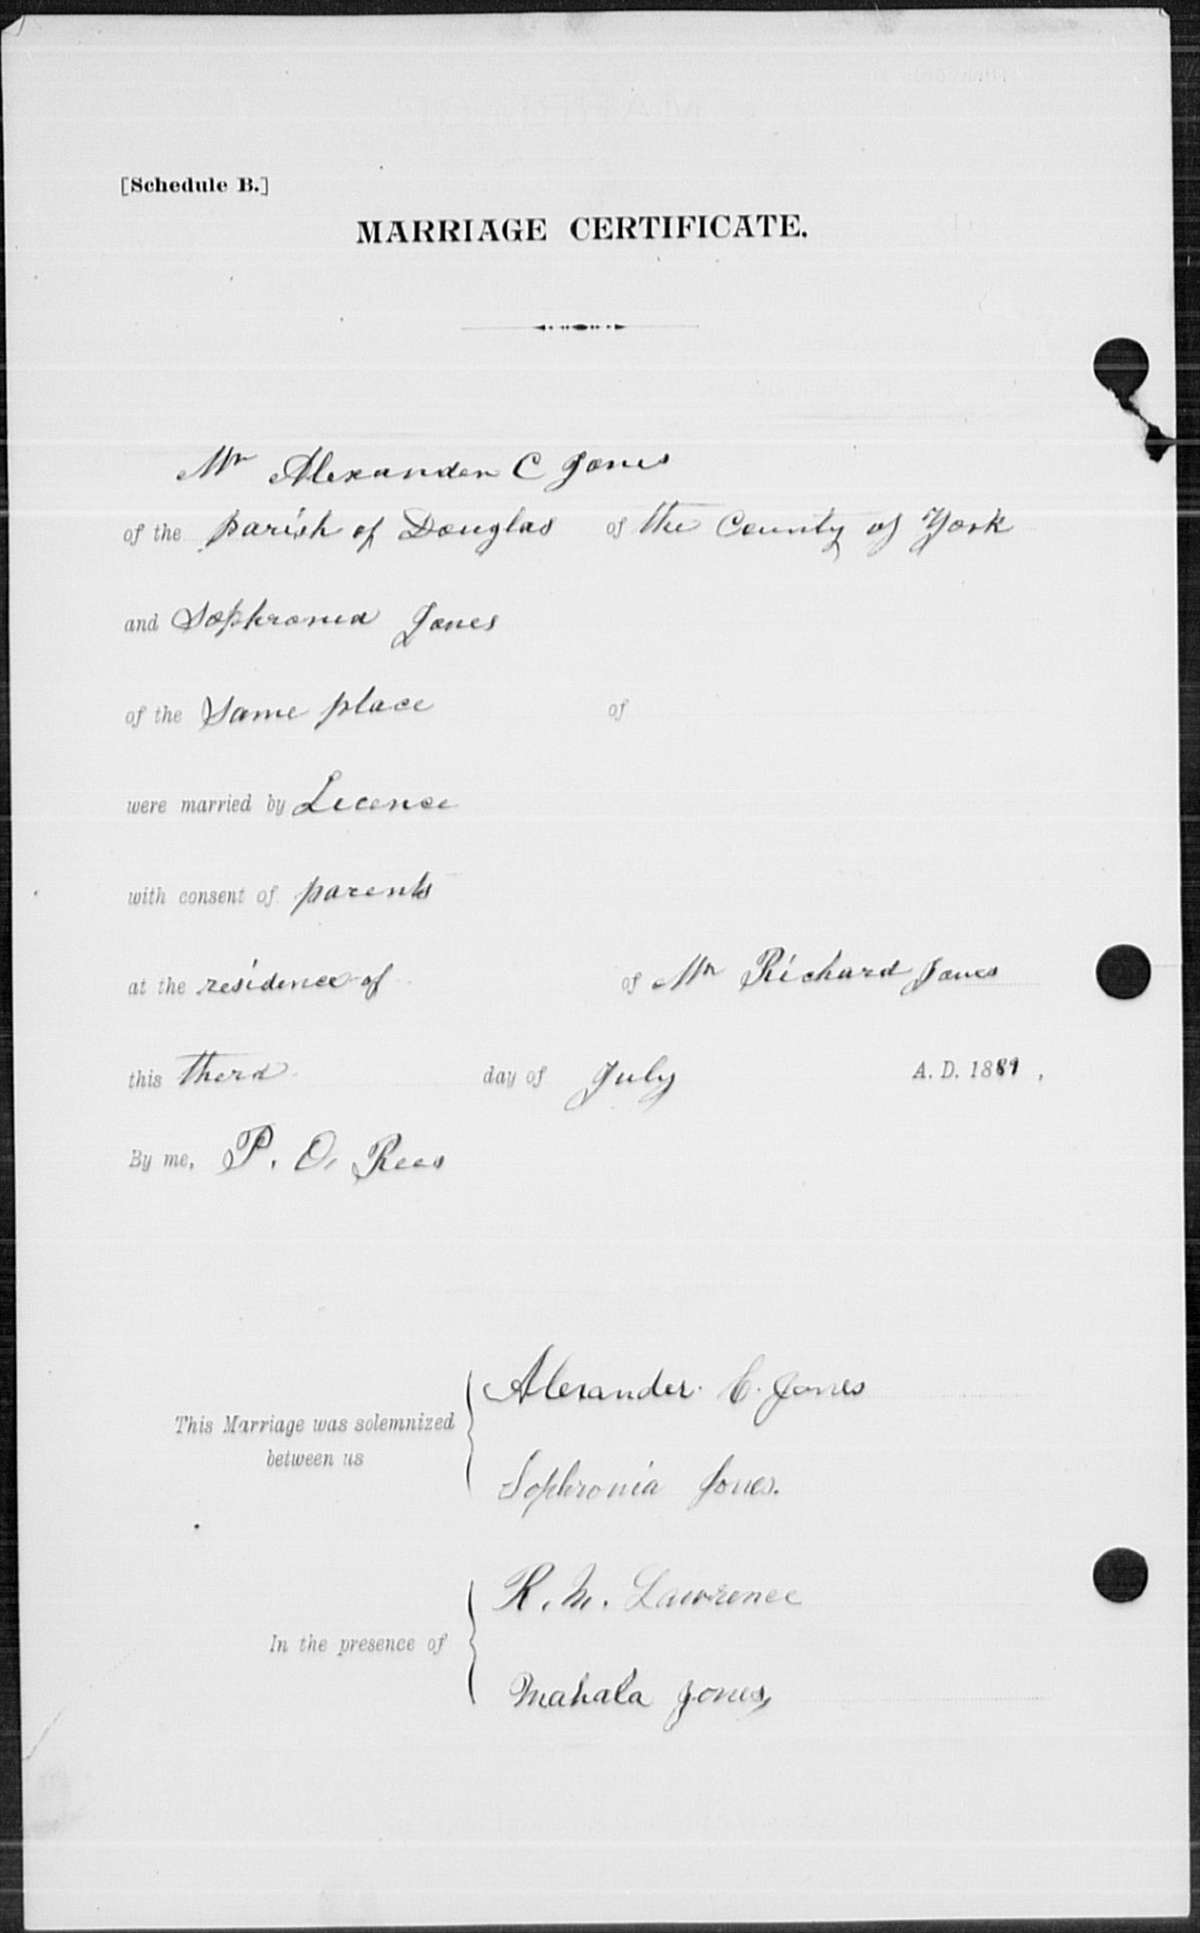 [Schedule B.]
MARRIAGE CERTIFICATE.
Mr Alexander C Jones
of the parish of Douglas of the County of York
and Sophronia Jones
of the Same place of
were married by Licence
with consent of parents
at the residence of of Mr Richard Jones
this therd day of July A. D. 1889 ,
By me, P. O. Rees
Alexander C. Jones
This Marriage was solemnized
between us
Sophronia Jones.
R. M. Lawrence
In the presence of
Mahala Jones,